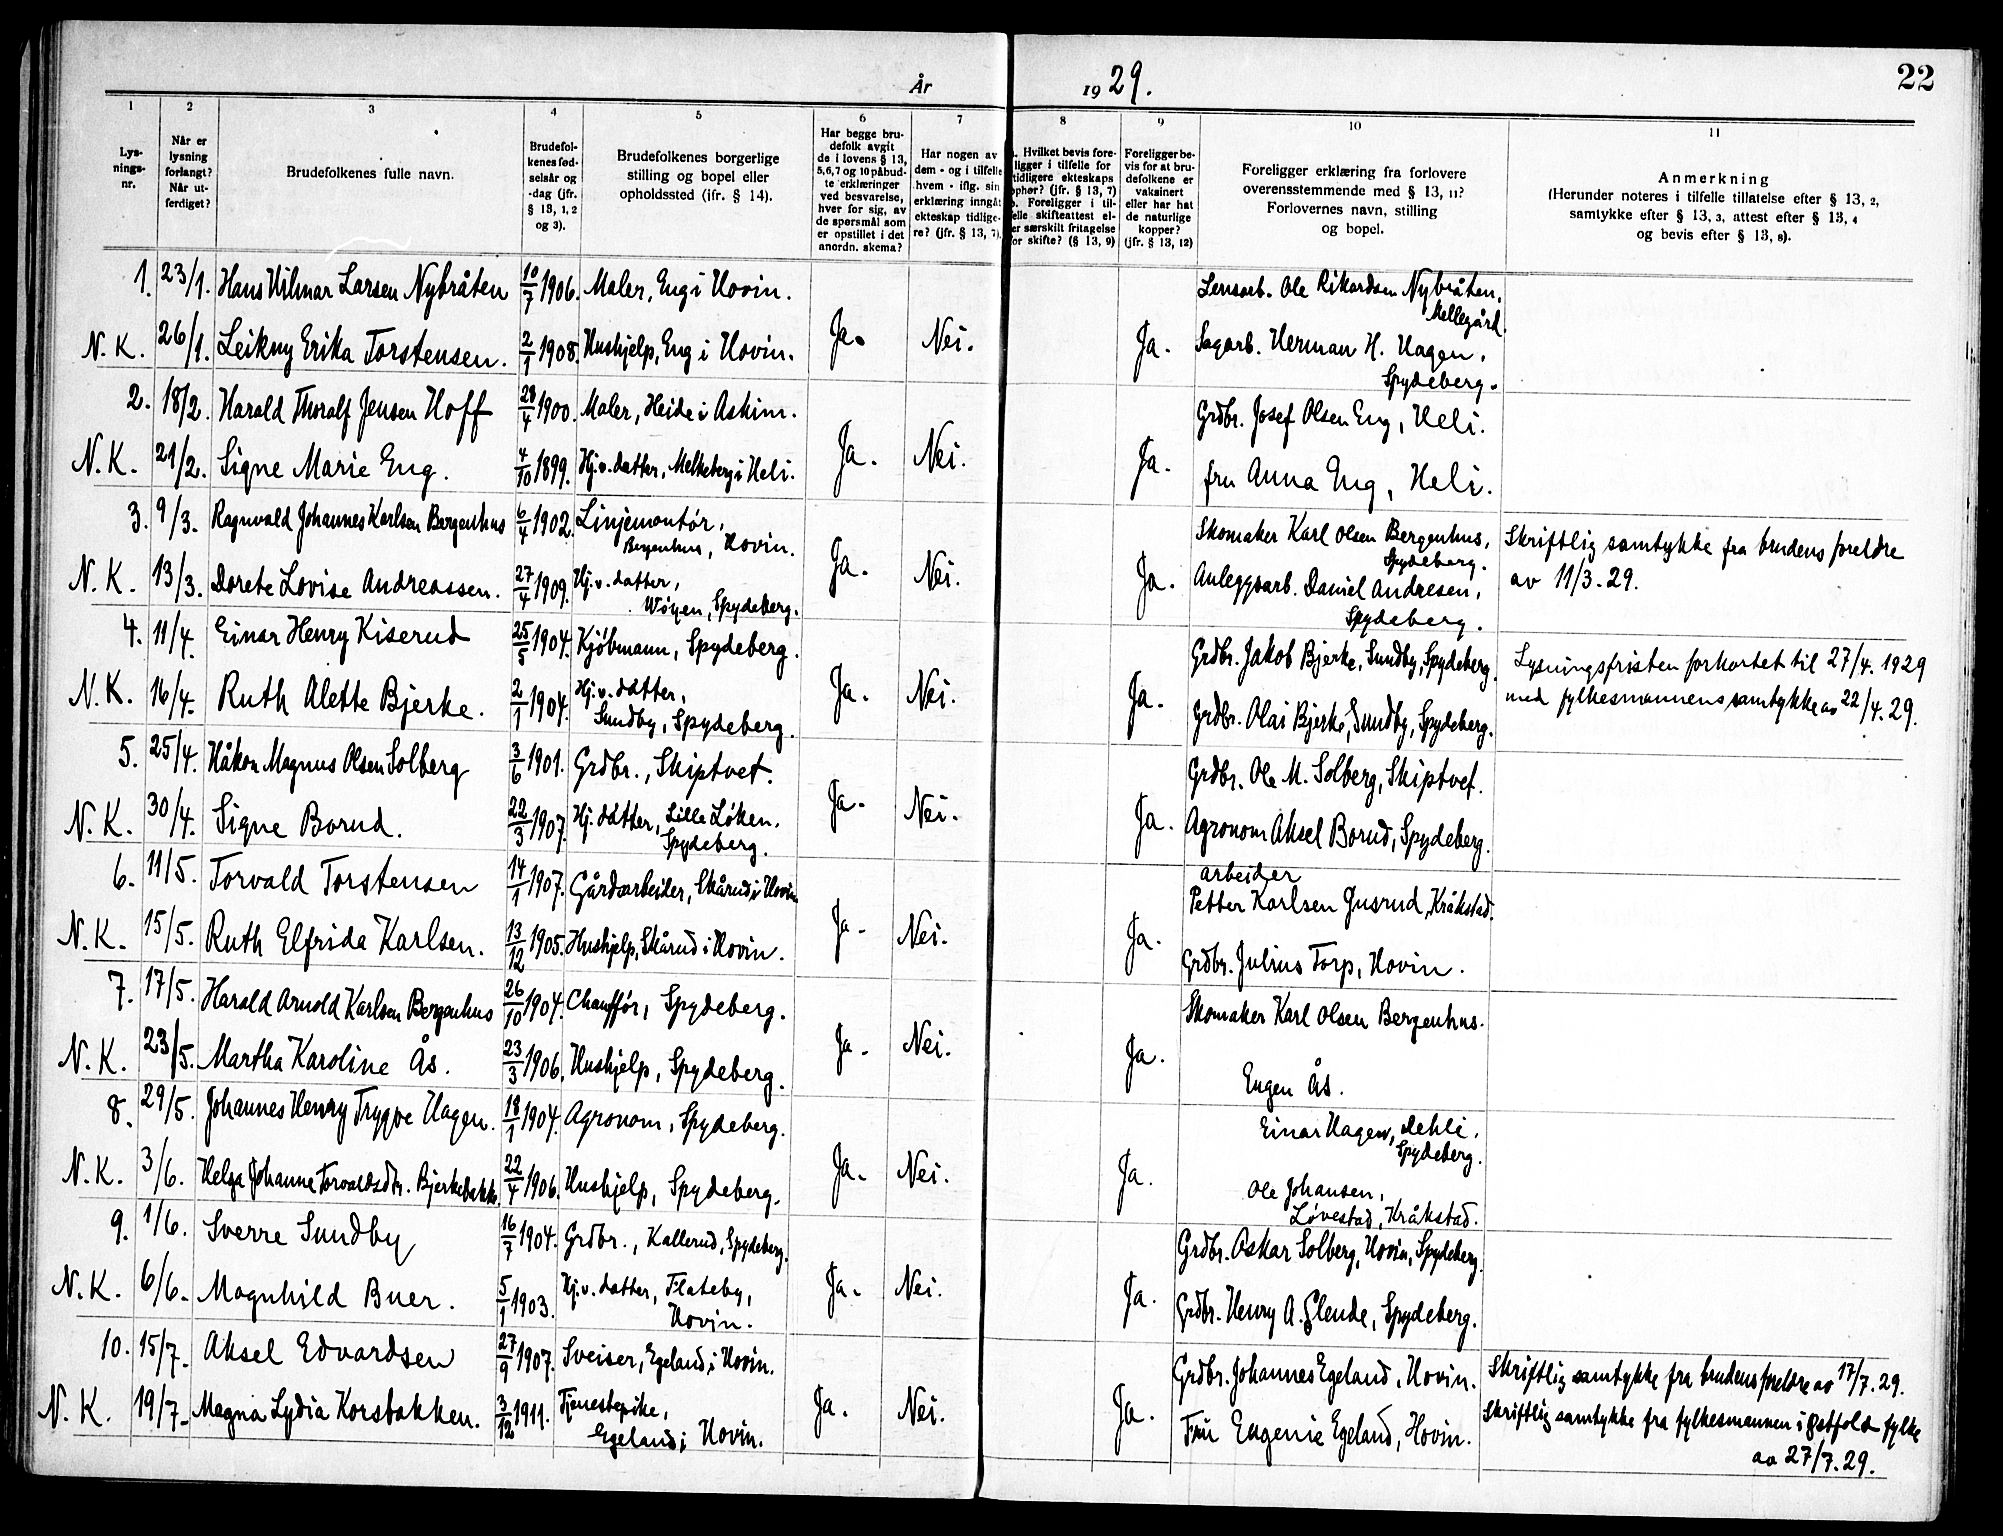 År 1929. 22
1 2 3 4 5 6 7 8 9 10 11
Lys-
nings-
nr.
Når er
lysning
forlangt?
Når ut-
ferdiget?
Brudefolkenes fulle navn.
Brudefol-
kenes fød-
selsår og
-dag (jfr.
§ 13, 1, 2
og 3).
Brudefolkenes borgerlige
stilling og bopel eller
opholdssted (ifr. § 14).
Har begge bru-
defolk avgit
de i lovens § 13,
5, 6, 7 og 10 påbud-
te erklæringer
ved besvarelse,
hver for sig, av
de spørsmål som
er opstillet i det
anordn. skema?
Har nogen av
dem - og i tilfelle
hvem - iflg. sin
erklæring inngåt
ekteskap tidlige-
re? (jfr. § 13, 7).
. Hvilket bevis fore-
ligger i tilfelle for
tidligere ekteskaps
ophør? (jfr. § 13, 7)
. Foreligger i til-
felle skifteattest el-
er særskilt fritagelse
for skifte? (§ 13, 9)
Foreligger be-
vis for at bru-
defolkene er
vaksinert
eller har hat
de naturlige
kopper?
(jfr. § 13, 12)
Foreligger erklæring fra forlovere
overensstemmende med § 13, 11?
Forlovernes navn, stilling
og bopel.
Anmerkning
(Herunder noteres i tilfelle tillatelse efter § 13, 2,
samtykke efter § 13, 3, attest efter § 13, 4
og bevis efter § 13, 8).
1. 23/1. Hans Hilmar Larsen Nybråten 10/7 1906. Maler, Eng i Hovin. Lensarb. Ole Rikardsen Nybråten,
Mellegård.
N.K. 26/1. Leikny Erika Torstensen. 2/1 1908. Hushjelp, Eng i Hovin. Ja. Nei. Ja. Sagarb. Herman H. Hagen,
Spydeberg.
2. 18/2. Harald Thoralf Jensen Hoff 28/4 1900. Maler, Heide i Askim. Grdbr. Josef Olsen Eng, Heli.
N.K. 21/2. Signe Marie Eng. 4/10 1899. Hj.v. datter, Melkeberg i Heli. Ja. Nei. Ja. fru Anna Eng, Heli.
3. 9/3. Ragnvald Johannes Karlsen Bergenhus 6/4 1902. Linjemontør,
Bergenhus, Hovin. Skomaker Karl Olsen Bergenhus,
Spydeberg. Skriftlig samtykke fra brudens foreldre
N.K. 13/3. Dorete Lovise Andreassen. 27/4 1909. Hj.v. datter,
Wøyen, Spydeberg. Ja. Nei. Ja. Anleggsarb. Daniel Andresen,
Spydeberg. av 11/3-29.
4. 11/4. Einar Henry Kiserud 25/5 1904. Kjøbmann, Spydeberg. Grdbr. Jakob Bjerke, Sundby, Spydeberg. Lysningsfristen forkortet til 27/4. 1929
N.K. 16/4. Ruth Alette Bjerke. 2/1 1904. Hj.v. datter,
Sundby, Spydeberg. Ja. Nei. Ja. Grdbr. Olai Bjerke, Sundby, Spydeberg. med fylkesmannens samtykke av 22/4. 29.
5. 25/4. Håkon Magnus Olsen Solberg 3/6 1901. Grdbr., Skiptvet. Grdbr. Ole M. Solberg, Skiptvet.
N.K. 30/4. Signe Borud. 22/3 1907. Hj. datter, Lille Løken.
Spydeberg. Ja. Nei. Ja. Agronom Aksel Borud, Spydeberg.
6. 11/5. Torvald Torstensen 14/1 1907. Gårdsarbeider, Skårud i Hovin arbeider
Petter Karlsen Gusrud, Kråkstad.
N.K. 15/5. Ruth Elfrida Karlsen. 13/12 1905. Hushjelp, Skårud i Hovin. Ja. Nei. Ja. Grdbr. Julius Torp, Hovin.
7. 17/5. Harald Arnold Karlsen Bergenhus 26/10 1904. Chauffør, Spydeberg. Skomaker Karl Olsen Bergenhus.
N.K. 23/5. Martha Karoline Ås. 23/3 1906. Hushjelp, Spydeberg. Ja. Nei. Ja. Eugen Ås.
8. 29/5. Johannes Henry Trygve Hagen. 18/1 1904. Agronom, Spydeberg. Einar Hagen, Dehli.
Spydeberg.
N.K. 3/6. Helga Johanne Torvaldsdtr. Bjerkebakke 22/4 1906. Hushjelp, Spydeberg. Ja. Nei. Ja. Ole Johansen,
Løvestad, Kråkstad.
9. 1/6. Sverre Sundby 16/7 1904. Grdbr., Kallerud, Spydeberg. Grdbr. Oskar Solberg, Hovin, Spydeberg
N.K. 6/6. Magnhild Buer. 5/1 1903. Hj.v. datter, Flateby,
Hovin. Ja. Nei. Ja. Grdbr. Henry A. Glende, Spydeberg.
10. 15/7. Aksel Edvardsen 27/9 1907. Sveiser, Egeland i Hovin. Grdbr. Johannes Egeland, Hovin. Skriftlig samtykke fra brudens foreldre av 17/7. 29.
N.K. 19/7. Magna Lydia Korsbakken. 3/12 1911. Tjenestepike,
Egeland i Hovin. Ja. Nei. Ja. Fru Eugenie Egeland, Hovin. Skriftlig samtykke fra fylkesmannen i Østfold fylke
av 27/7. 29.